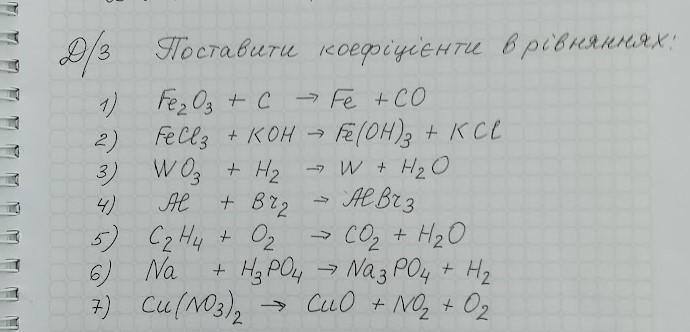 Д/З Поставити коефіцієнти в рівняннях:
1) Fe₂O₃ + C → Fe + CO
2) FeCl₃ + KOH → Fe(OH)₃ + KCl
3) WO₃ + H₂ → W + H₂O
4) Al + Br₂ → AlBr₃
5) C₂H₄ + O₂ → CO₂ + H₂O
6) Na + H₃PO₄ → Na₃PO₄ + H₂
7) Cu(NO₃)₂ → CuO + NO₂ + O₂